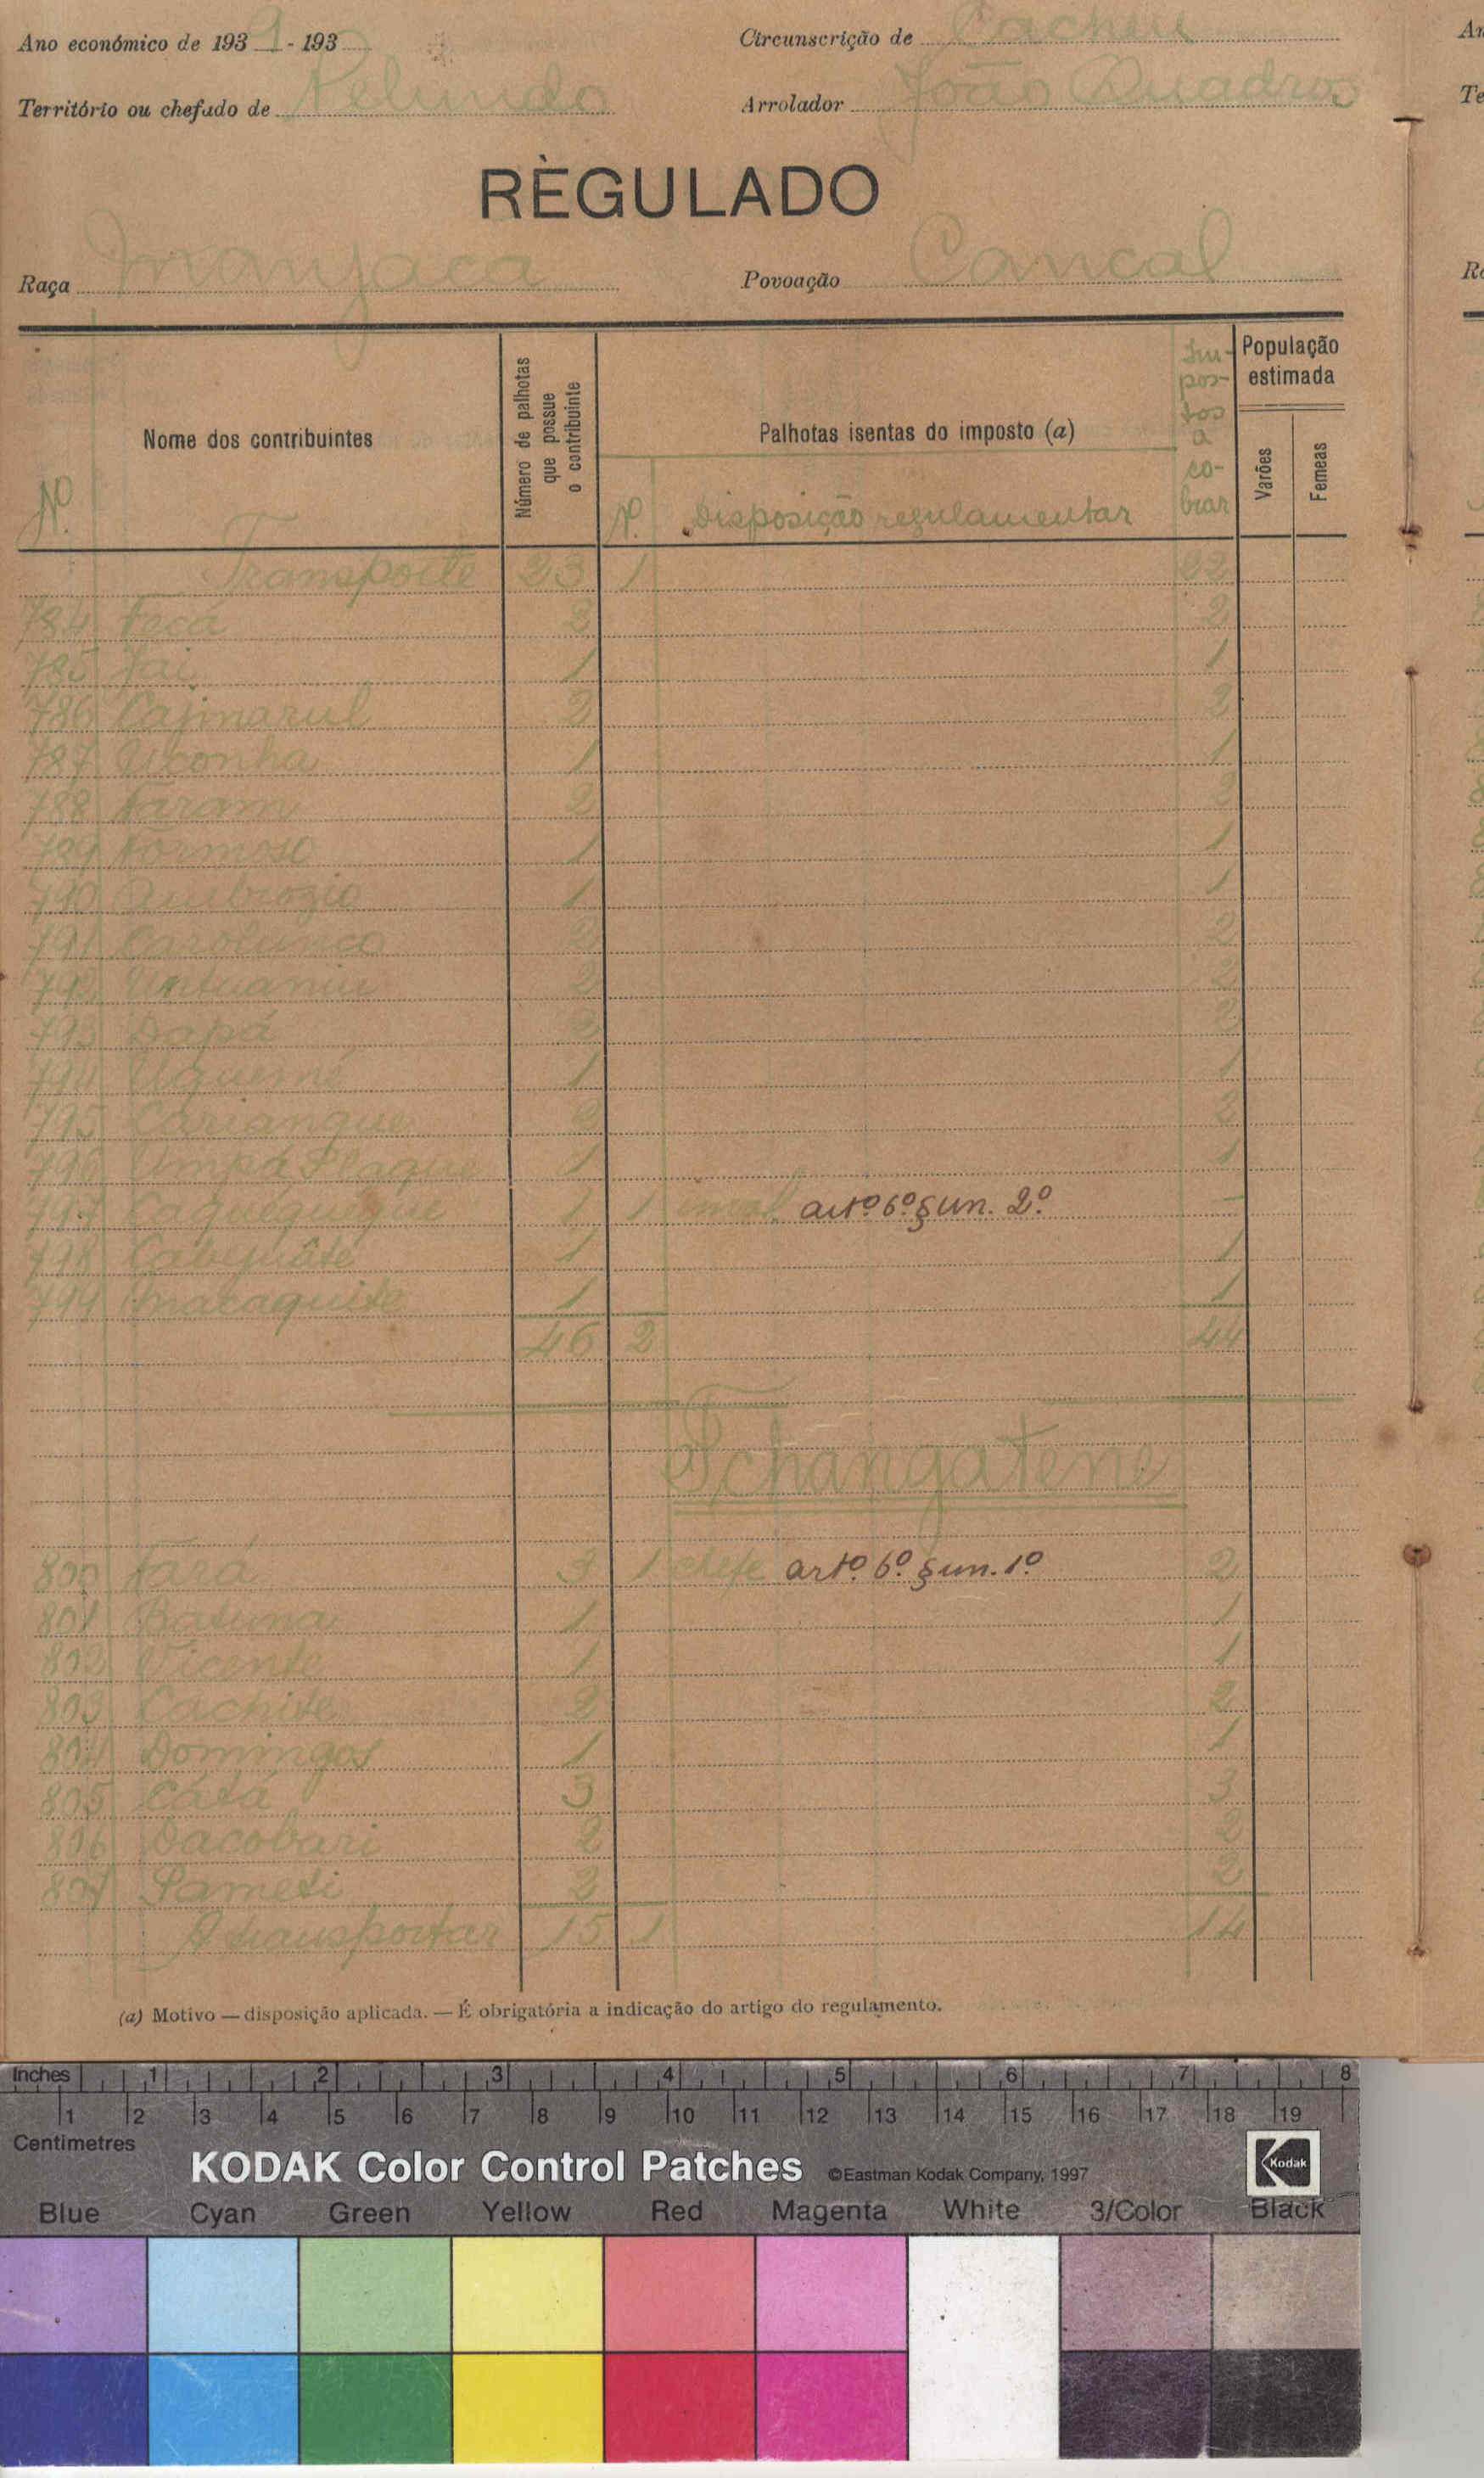 Ano económico de 193 - 193
Circunscrição de Cacheu
Território ou chefado de Pelundo
Arrolador João Quadros
RÈGULADO
Raça Manjaca
Povoação Cancal
N.º
Nome dos contribuintes
Número de palhotas que possue o contribuinte
Palhotas isentas do imposto (a)
N.º Disposição regulamentar
Impostos a cobrar
População estimada
Varões
Femeas
Transporte 23 1 22
784 2 2
785 1 1
786 2 2
787 Ubonha 1 1
788 Faram 2 2
789 Formoso 1 1
790 Ambrozio 1 1
791 2 2
792 2 2
793 Dapá 2 2
794 1 1
795 Cariangue 2 2
796 1 1
797 1 1 art.º 6.º § un. 2.º —
798 1 1
799 Macaquite 1 1
46 2 44
Tchangatene
800 Fará 3 1 chefe art.º 6.º § un. 1.º 2
801 Batuma 1 1
802 Vicente 1 1
803 Cachite 2 2
804 Domingos 1 1
805 Cátá 3 3
806 Dacobari 2 2
807 Sameti 2 2
A transportar 15 1 14
(a) Motivo — disposição aplicada. — É obrigatória a indicação do artigo do regulamento.
Inches 1 2 3 4 5 6 7 8
1 2 3 4 5 6 7 8 9 10 11 12 13 14 15 16 17 18 19
Centimetres
KODAK Color Control Patches ©Eastman Kodak Company, 1997 Kodak
Blue Cyan Green Yellow Red Magenta White 3/Color Black